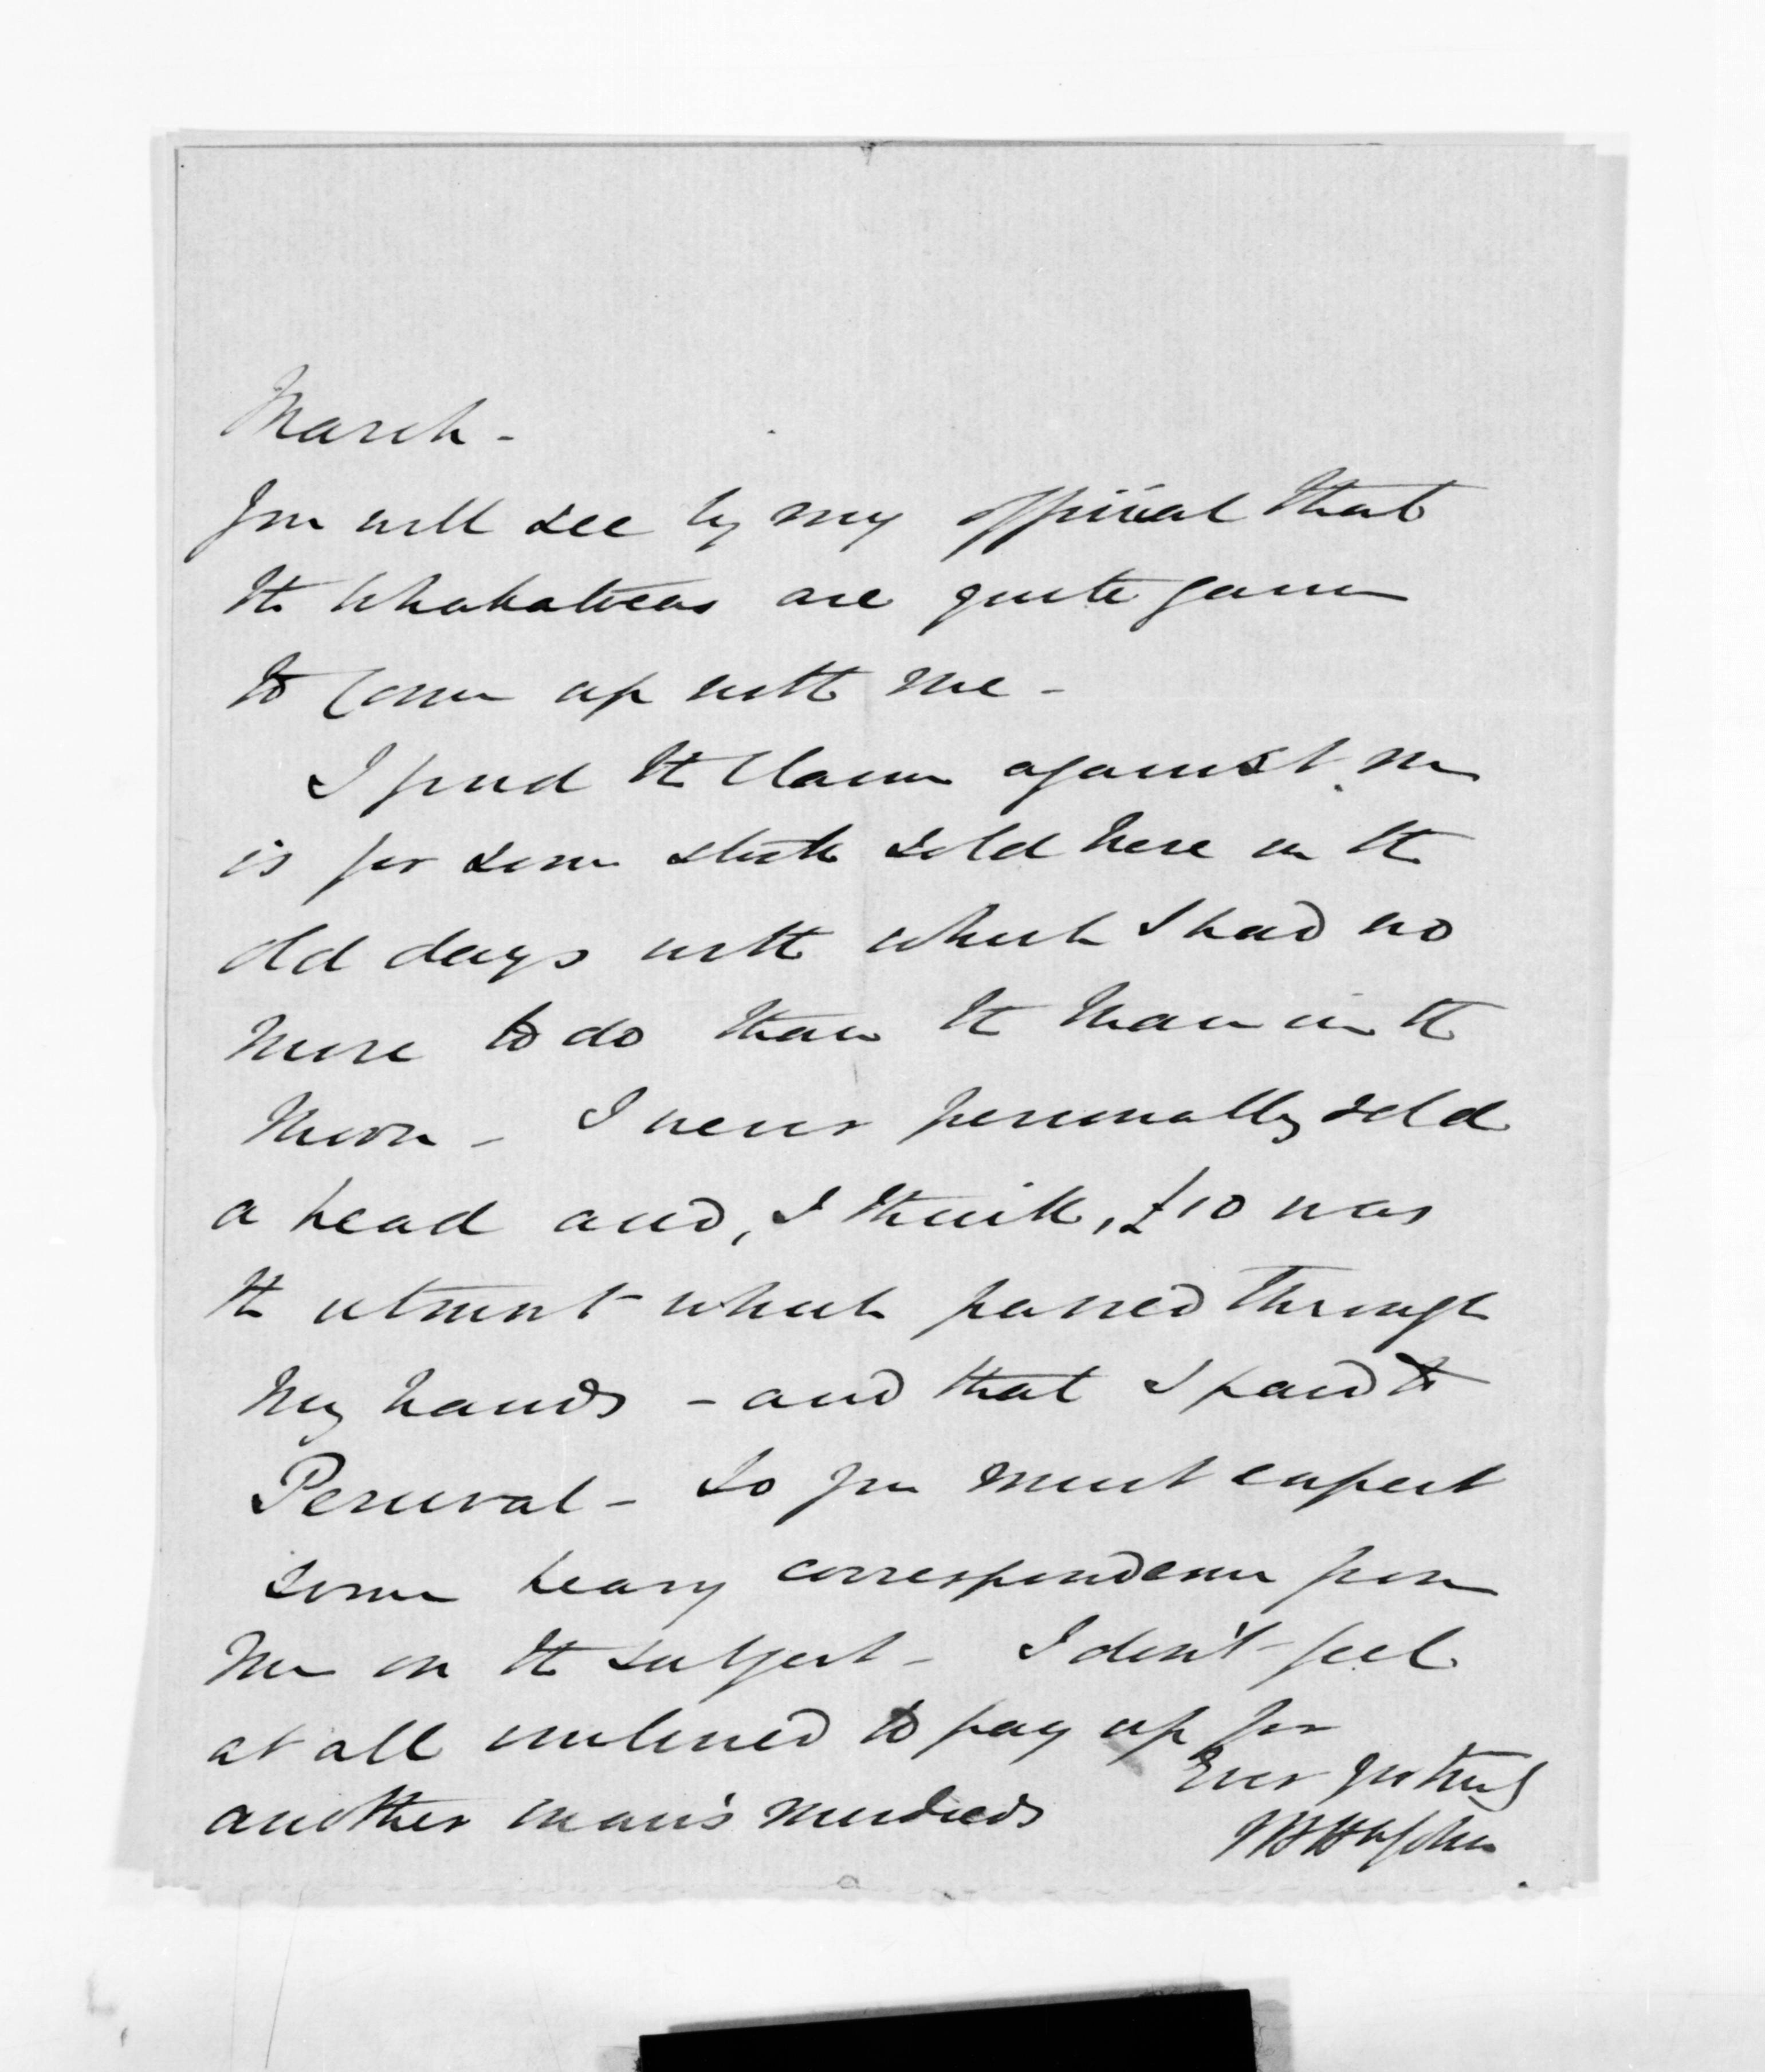 March -
You will see by my official that
the Whakatieas are quite game
to come up with me -
I find the claim against me
is for some stock sold here in the
old days with which I had no
more to do than the man in the
Moon - I never personally sold
a head and, I think, £10 was
the utmost which passed through
my hands - and that I paid to
Percival - So you must expect
some heavy correspondence from
me on the subject - I don't feel
at all inclined to pay up for
another man's misdeeds
Ever yrs truly